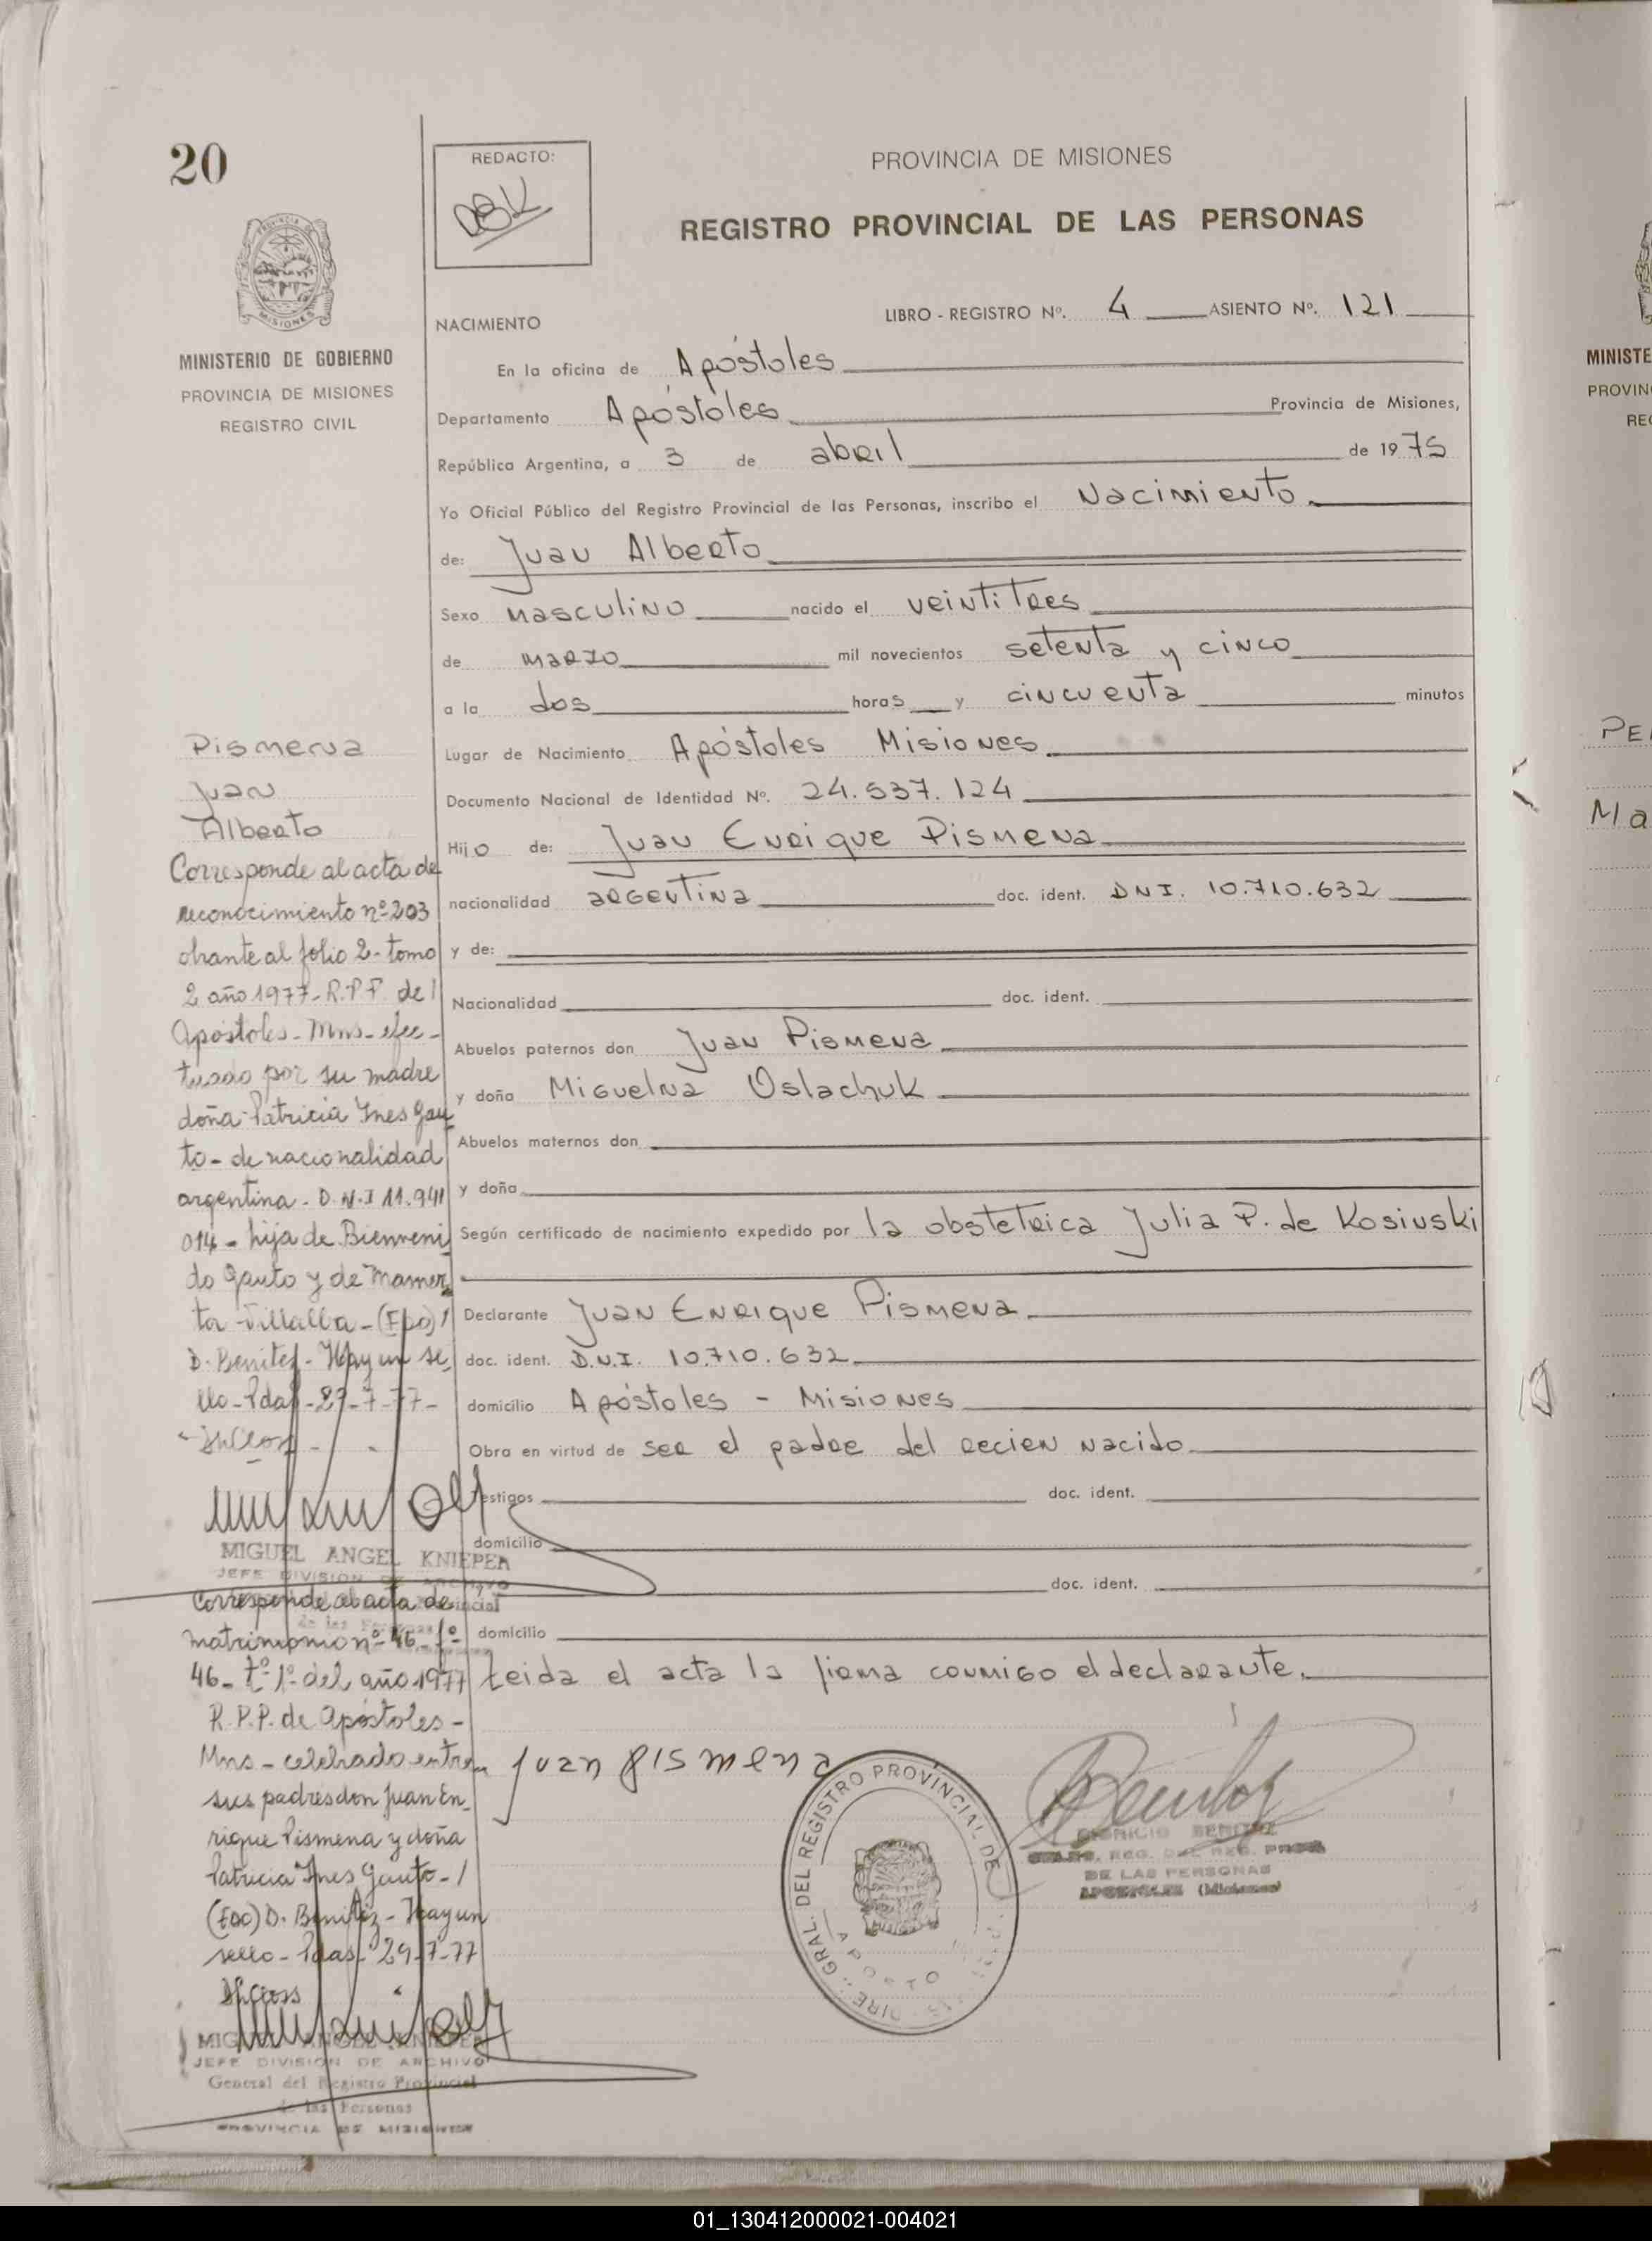 20
REDACTO:
PROVINCIA DE MISIONES
REGISTRO PROVINCIAL DE LAS PERSONAS
PROVINCIA
MISIONES
MINISTERIO DE GOBIERNO
PROVINCIA DE MISIONES
REGISTRO CIVIL
NACIMIENTO
LIBRO - REGISTRO Nº. 4 ASIENTO Nº. 121
En la oficina de Apóstoles
Departamento Apóstoles Provincia de Misiones,
República Argentina, a 3 de abril de 1975
Yo Oficial Público del Registro Provincial de las Personas, inscribo el Nacimiento
de: Juan Alberto
Sexo masculino nacido el veintitres
de marzo mil novecientos setenta y cinco
a la dos horas y cincuenta minutos
Lugar de Nacimiento Apóstoles Misiones
Documento Nacional de Identidad Nº. 24.537.124
Hijo de: Juan Enrique Pismena
nacionalidad argentina doc. ident. DNI. 10.710.632
y de:
Nacionalidad doc. ident.
Abuelos paternos don Juan Pismena
y doña Miguelna Oslachuk
Abuelos maternos don
y doña
Según certificado de nacimiento expedido por la obstetrica Julia P. de Kosiuski
Declarante Juan Enrique Pismena
doc. ident. D.N.I. 10.710.632
domicilio Apóstoles - Misiones
Obra en virtud de ser el padre del recien nacido
testigos doc. ident.
domicilio
doc. ident.
domicilio
Leida el acta la firma conmigo el declarante.
Juan Pismena
DIRE. GRAL. DEL REGISTRO PROVINCIAL DE
BENITEZ
DE LAS PERSONAS
APOSTOLES (Misiones)
Pismena
Juan
Alberto
Corresponde al acta de
reconocimiento nº 203
obrante al folio 2- tomo
2 año 1977- R.P.P. de
Apóstoles- Mns- efec-
tuado por su madre
doña Patricia Ines Gau
to- de nacionalidad
argentina- D.N.I 11.941
014- hija de Bienveni
do Gauto y de Mamer
ta Villalba- (Fdo)
D. Benitez- Hay un se
llo- Pdas- 27-7-77-
MIGUEL ANGEL KNIEPER
JEFE DIVISION DE ARCHIVO
Corresponde al acta de
matrimonio nº 46 fº
46- tº 1º del año 1977
R.P.P. de Apóstoles-
Mns- celebrado entre
sus padres don Juan En-
rique Pismena y doña
Patricia Ines Gauto-
(Fdo) D. Benitez- Hay un
sello- Pdas- 29-7-77
MIGUEL ANGEL KNIEPER
JEFE DIVISION DE ARCHIVO
General del Registro Provincial
de las Personas
PROVINCIA DE MISIONES
MINISTE
PROVIN
RE
PE
Ma
01_130412000021-004021